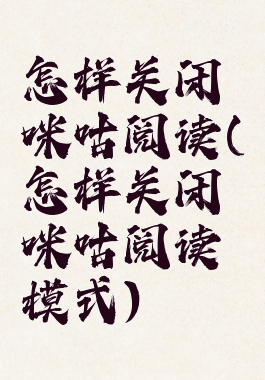 怎样关闭
咪咕阅读(
怎样关闭
咪咕阅读
模式)